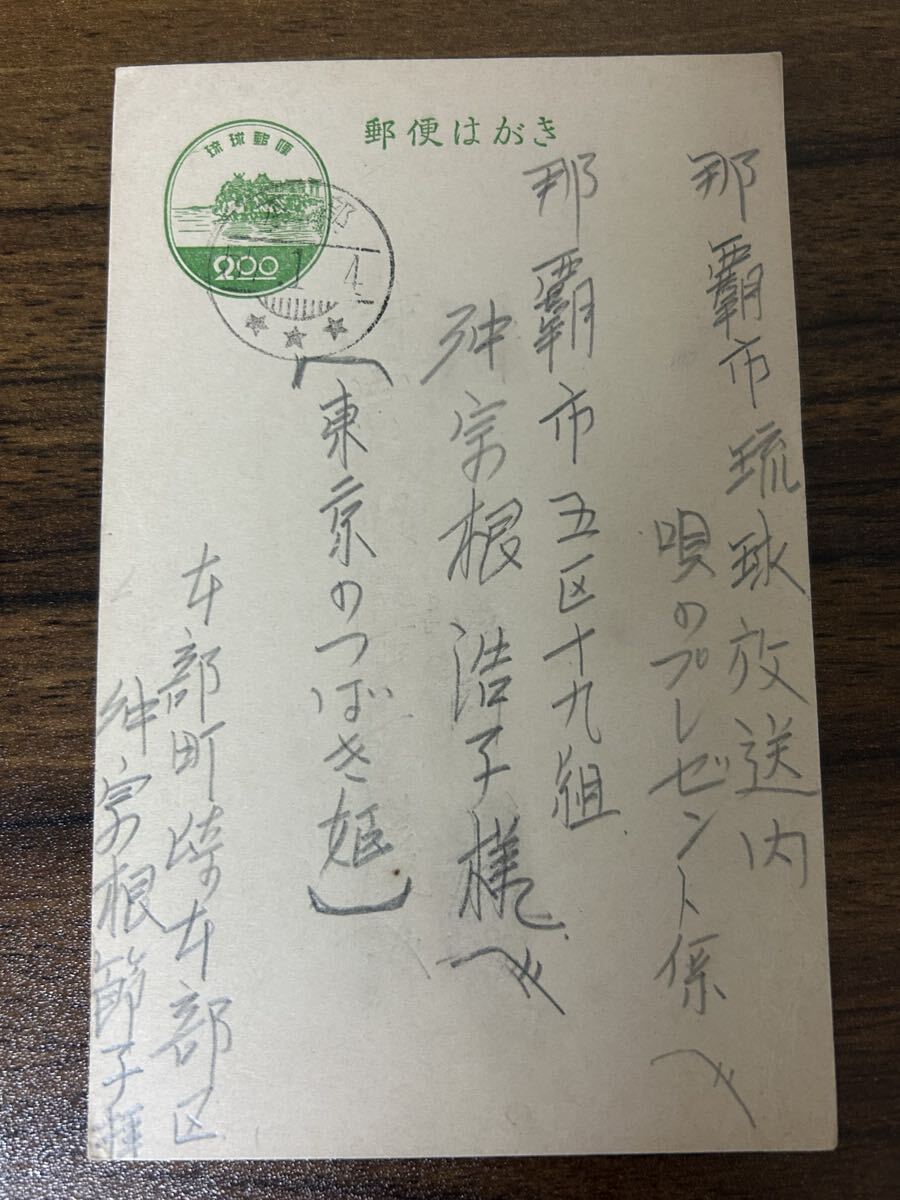 郵便はがき
琉球郵便
2.00
部
1 4
那覇市琉球放送内
唄のプレゼント係へ
那覇市五区十九組
仲宗根浩子様へ
(東京のつばき姫)
本部町崎本部区
仲宗根節子拝